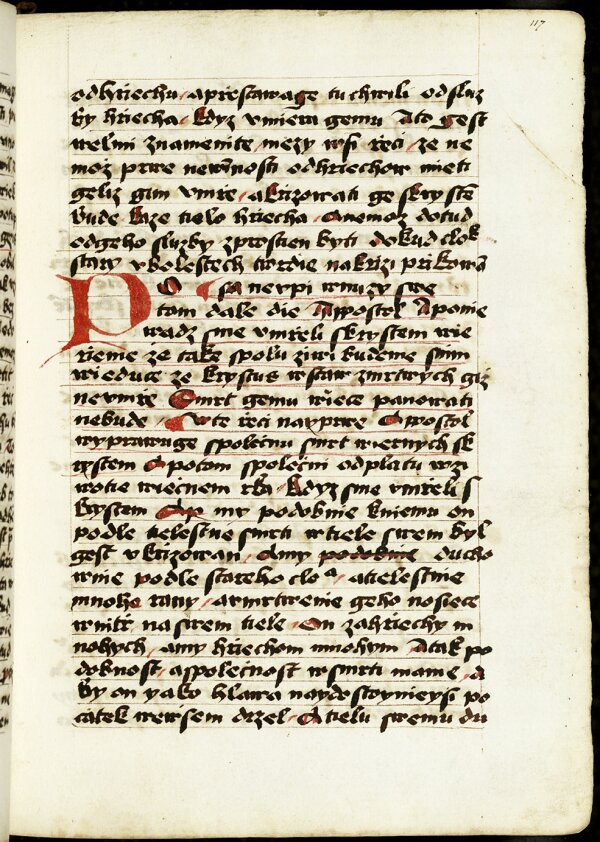 117
odhriechu aprzestawage tu chwili odsluz
by hriecha kdyz vmiera gemu Ato gest
welmi znamenite mezy wsi rzeci ze ne
moz prwe newinnosti odhriechow mieti
geliz gim vmrze akrizowati ge skryste
bude kaze tielo hriecha Anemoz dotud
odgeho sluzby zprostien byti dokud clok
stary vbolestech twrdie nakrizi prikowa
Po sa newpi wnuzy swe
tom dale die Apostol Aponie
wadz sme vmrzeli skrystem wie
rzieme ze take spolu ziwi budeme snim
wieduce ze krystus wstaw zmrtwych giz
nevmrze Smrt gemu wiece panowati
nebude wte rzeci nayprwe Apostol
wyprawuge spolecnu smrt wiernych sk
rystem Apotom spolecni odplatu wzi
wotie wiecnem rka kdyz sme vmrzeli s
krystem Ap my podobnie kniemu on
podle tielestne smrti wtiele swem byl
gest vkrizowan Amy podobnie ducho
wnie podle stareho clo a atielestnie
mnoho rany awmrtwenie geho nosiece
wnitr naswem tiele On zahriechy m
nohych amy hriechom mnohym Atak po
dobnost aspolecnost wsmrti mame a
by on yako hlawa naydostoyneysi po
catek wewsem drzel A tielu swemu du